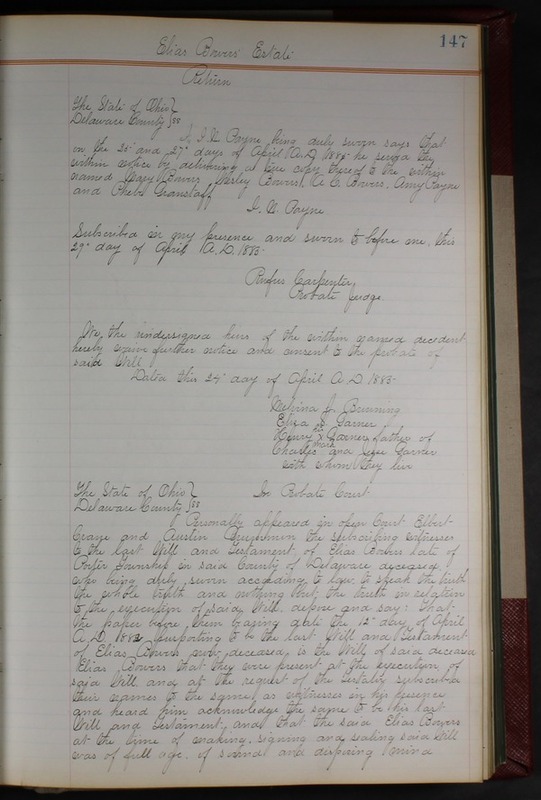 147
Elias Bowers' Estate
Return
The State of Ohio }
Delaware County } ss
I, I. N. Payne being duly sworn says that
on the 25" and 27" days of April A.D. 1883 he served the
within notice by delivering a true copy thereof to the within
named Bowers, Wesley Bowers, A. C. Bowers, Amy Payne
and Phebe Granstaff
I. N. Payne
Subscribed in my presence and sworn to before me, this
27" day of April A.D. 1883.
Rufus Carpenter
Probate Judge
We, the undersigned heirs of the within named decedent,
hereby waive further notice and consent to the probate of
said Will.
Dated this 24" day of April A.D. 1883.
Melvina J. Bruning
Eliza Garner
Henry his x mark Garner, father of
Charles and Jesse Garner
with whom they live
The State of Ohio } In Probate Court
Delaware County } ss
Personally appeared in open Court Elbert
Crane and Austin the subscribing witnesses
to the last Will and Testament, of Elias Bowers late of
Porter Township in said County of Delaware, deceased,
who being duly sworn according to law, to speak the truth
the whole truth and nothing but the truth in relation
to the execution of said Will, depose and say: That
the paper before them bearing date the 12" day of April
A.D. 1882 purporting to be the last Will and Testament
of Elias Bowers now deceased, is the Will of said deceased
Elias Bowers that they were present at the execution of
said Will and at the request of the testator subscribed
their names to the same, as witnesses in his presence
and heard him acknowledge the same to be his last
Will and Testament, and that the said Elias Bowers
at the time of making, signing and sealing said Will
was of full age, of sound and disposing mind